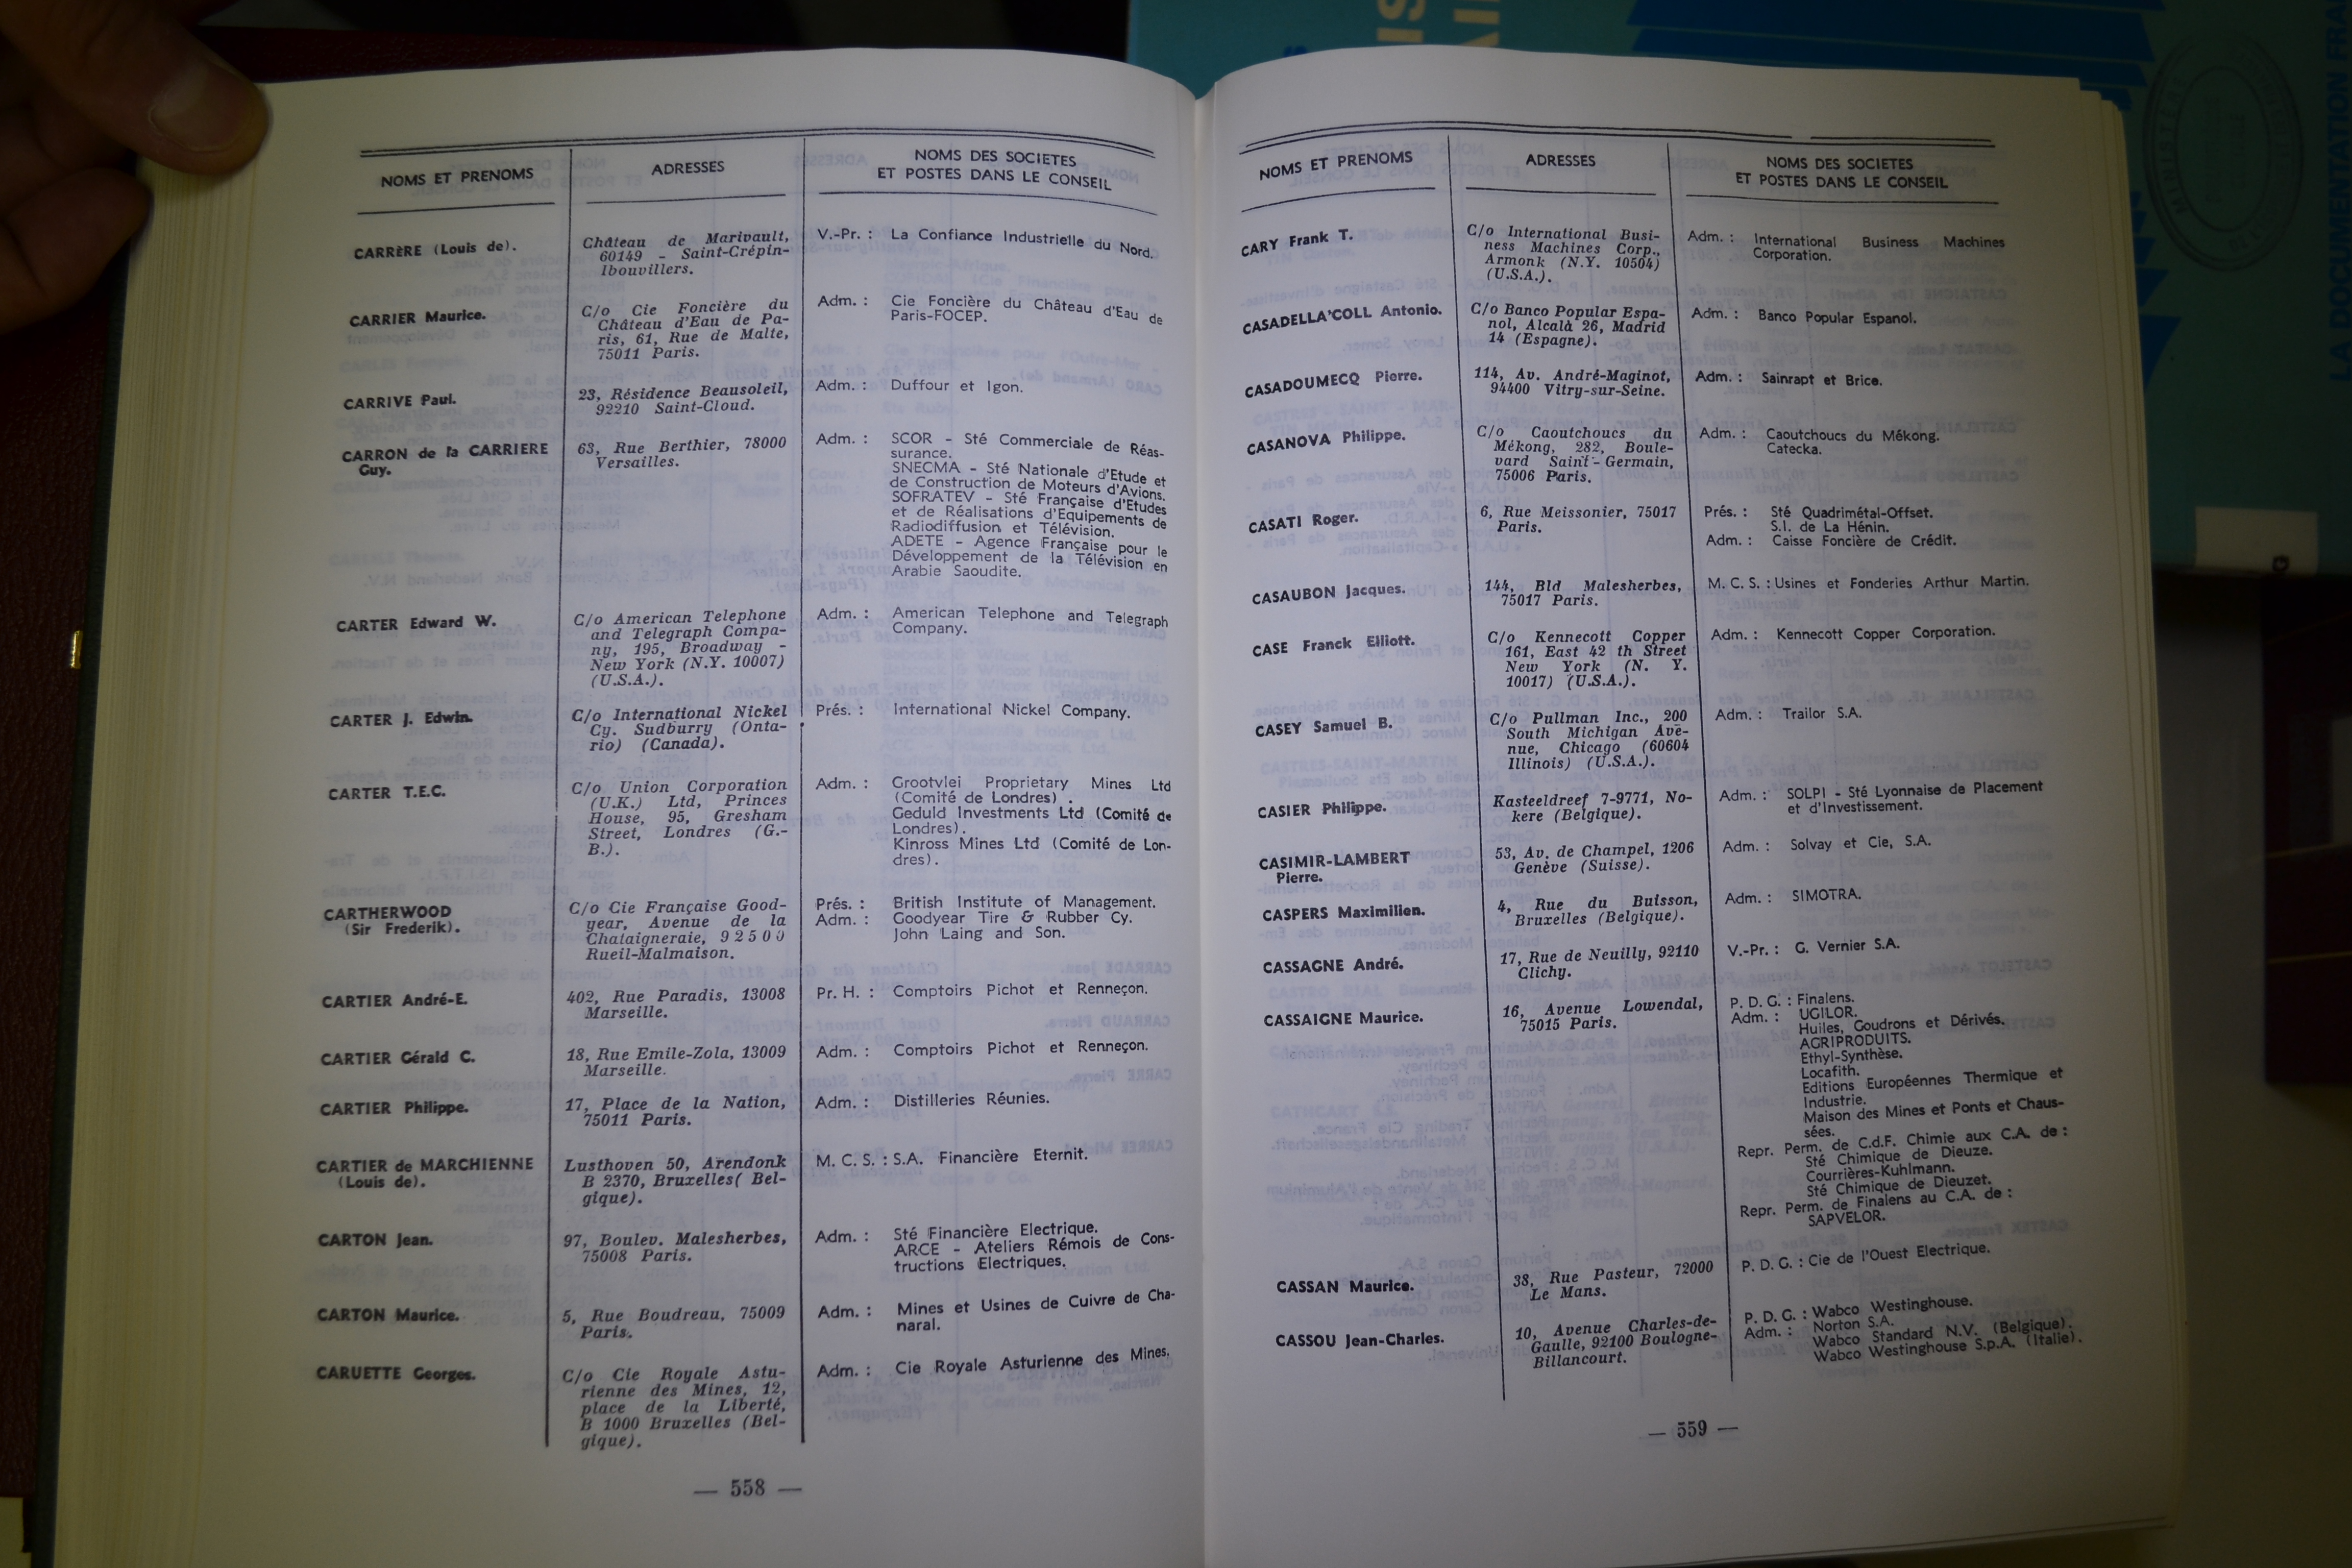 NOMS ET PRENOMS
ADRESSES
NOMS DES SOCIETES
ET POSTES DANS LE CONSEIL
CARRèRE (Louis de).
Château de Marivault,
60149 - Saint-Crépin-
Ibouvillers.
V.-Pr. : La Confiance Industrielle du Nord.
CARRIER Maurice.
C/o Cie Foncière du
Château d'Eau de Pa-
ris, 61, Rue de Malte,
75011 Paris.
Adm. : Cie Foncière du Château d'Eau de
Paris-FOCEP.
CARRIVE Paul.
23, Résidence Beausoleil,
92210 Saint-Cloud.
Adm. : Duffour et Igon.
CARRON de la CARRIERE
Guy.
63, Rue Berthier, 78000
Versailles.
Adm. : SCOR - Sté Commerciale de Réas-
surance.
SNECMA - Sté Nationale d'Etude et
de Construction de Moteurs d'Avions.
SOFRATEV - Sté Française d'Etudes
et de Réalisations d'Equipements de
Radiodiffusion et Télévision.
ADETE - Agence Française pour le
Développement de la Télévision en
Arabie Saoudite.
CARTER Edward W.
C/o American Telephone
and Telegraph Compa-
ny, 195, Broadway -
New York (N.Y. 10007)
(U.S.A.).
Adm. : American Telephone and Telegraph
Company.
CARTER J. Edwin.
C/o International Nickel
Cy. Sudburry (Onta-
rio) (Canada).
Prés. : International Nickel Company.
CARTER T.E.C.
C/o Union Corporation
(U.K.) Ltd, Princes
House, 95, Gresham
Street, Londres (G.-
B.).
Adm. : Grootvlei Proprietary Mines Ltd
(Comité de Londres) .
Geduld Investments Ltd (Comité de
Londres).
Kinross Mines Ltd (Comité de Lon-
dres).
CARTHERWOOD
(Sir Frederik).
C/o Cie Française Good-
year, Avenue de la
Chataigneraie, 92500
Rueil-Malmaison.
Prés. : British Institute of Management.
Adm. : Goodyear Tire & Rubber Cy.
John Laing and Son.
CARTIER André-E.
402, Rue Paradis, 13008
Marseille.
Pr. H. : Comptoirs Pichot et Renneçon.
CARTIER Gérald C.
18, Rue Emile-Zola, 13009
Marseille.
Adm. : Comptoirs Pichot et Renneçon.
CARTIER Philippe.
17, Place de la Nation,
75011 Paris.
Adm. : Distilleries Réunies.
CARTIER de MARCHIENNE
(Louis de).
Lusthoven 50, Arendonk
B 2370, Bruxelles( Bel-
gique).
M. C. S. : S.A. Financière Eternit.
CARTON Jean.
97, Boulev. Malesherbes,
75008 Paris.
Adm. : Sté Financière Electrique.
ARCE - Ateliers Rémois de Cons-
tructions Electriques.
CARTON Maurice.
5, Rue Boudreau, 75009
Paris.
Adm. : Mines et Usines de Cuivre de Cha-
naral.
CARUETTE Georges.
C/o Cie Royale Astu-
rienne des Mines, 12,
place de la Liberté,
B 1000 Bruxelles (Bel-
gique).
Adm. : Cie Royale Asturienne des Mines.
— 558 —
NOMS ET PRENOMS
ADRESSES
NOMS DES SOCIETES
ET POSTES DANS LE CONSEIL
CARY Frank T.
C/o International Busi-
ness Machines Corp.,
Armonk (N.Y. 10504)
(U.S.A.).
Adm. : International Business Machines
Corporation.
CASADELLA'COLL Antonio.
C/o Banco Popular Espa-
nol, Alcalà 26, Madrid
14 (Espagne).
Adm. : Banco Popular Espanol.
CASADOUMECQ Pierre.
114, Av. André-Maginot,
94400 Vitry-sur-Seine.
Adm. : Sainrapt et Brice.
CASANOVA Philippe.
C/o Caoutchoucs du
Mékong, 282, Boule-
vard Saint-Germain,
75006 Paris.
Adm. : Caoutchoucs du Mékong.
Catecka.
CASATI Roger.
6, Rue Meissonier, 75017
Paris.
Prés. : Sté Quadrimétal-Offset.
S.I. de La Hénin.
Adm. : Caisse Foncière de Crédit.
CASAUBON Jacques.
144, Bld Malesherbes,
75017 Paris.
M. C. S. : Usines et Fonderies Arthur Martin.
CASE Franck Elliott.
C/o Kennecott Copper
161, East 42 th Street
New York (N. Y.
10017) (U.S.A.).
Adm. : Kennecott Copper Corporation.
CASEY Samuel B.
C/o Pullman Inc., 200
South Michigan Ave-
nue, Chicago (60604
Illinois) (U.S.A.).
Adm. : Trailor S.A.
CASIER Philippe.
Kasteeldreef 7-9771, No-
kere (Belgique).
Adm. : SOLPI - Sté Lyonnaise de Placement
et d'Investissement.
CASIMIR-LAMBERT
Pierre.
53, Av. de Champel, 1206
Genève (Suisse).
Adm. : Solvay et Cie, S.A.
CASPERS Maximilien.
4, Rue du Buisson,
Bruxelles (Belgique).
Adm. : SIMOTRA.
CASSAGNE André.
17, Rue de Neuilly, 92110
Clichy.
V.-Pr. : G. Vernier S.A.
CASSAIGNE Maurice.
16, Avenue Lowendal,
75015 Paris.
P. D. G. : Finalens.
Adm. : UGILOR.
Huiles, Goudrons et Dérivés.
AGRIPRODUITS.
Ethyl-Synthèse.
Locafith.
Editions Européennes Thermique et
Industrie.
Maison des Mines et Ponts et Chaus-
sées.
Repr. Perm. de C.d.F. Chimie aux C.A. de :
Sté Chimique de Dieuze.
Courrières-Kuhlmann.
Sté Chimique de Dieuzet.
Repr. Perm. de Finalens au C.A. de :
SAPVELOR.
CASSAN Maurice.
38, Rue Pasteur, 72000
Le Mans.
P. D. G. : Cie de l'Ouest Electrique.
CASSOU Jean-Charles.
10, Avenue Charles-de-
Gaulle, 92100 Boulogne-
Billancourt.
P. D. G. : Wabco Westinghouse.
Adm. : Norton S.A.
Wabco Standard N.V. (Belgique).
Wabco Westinghouse S.p.A. (Italie).
— 559 —
LA DOCUMENTATION FRA